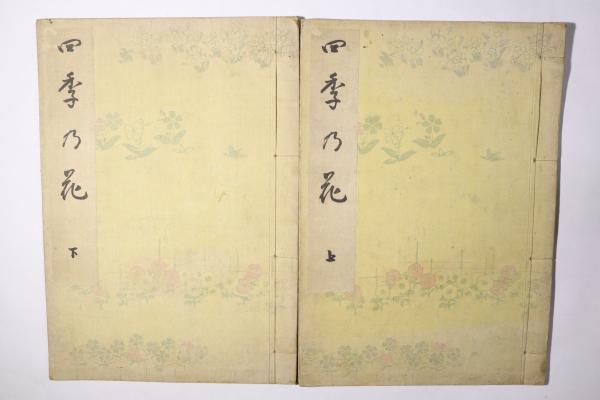 四季乃花
上
四季乃花
下